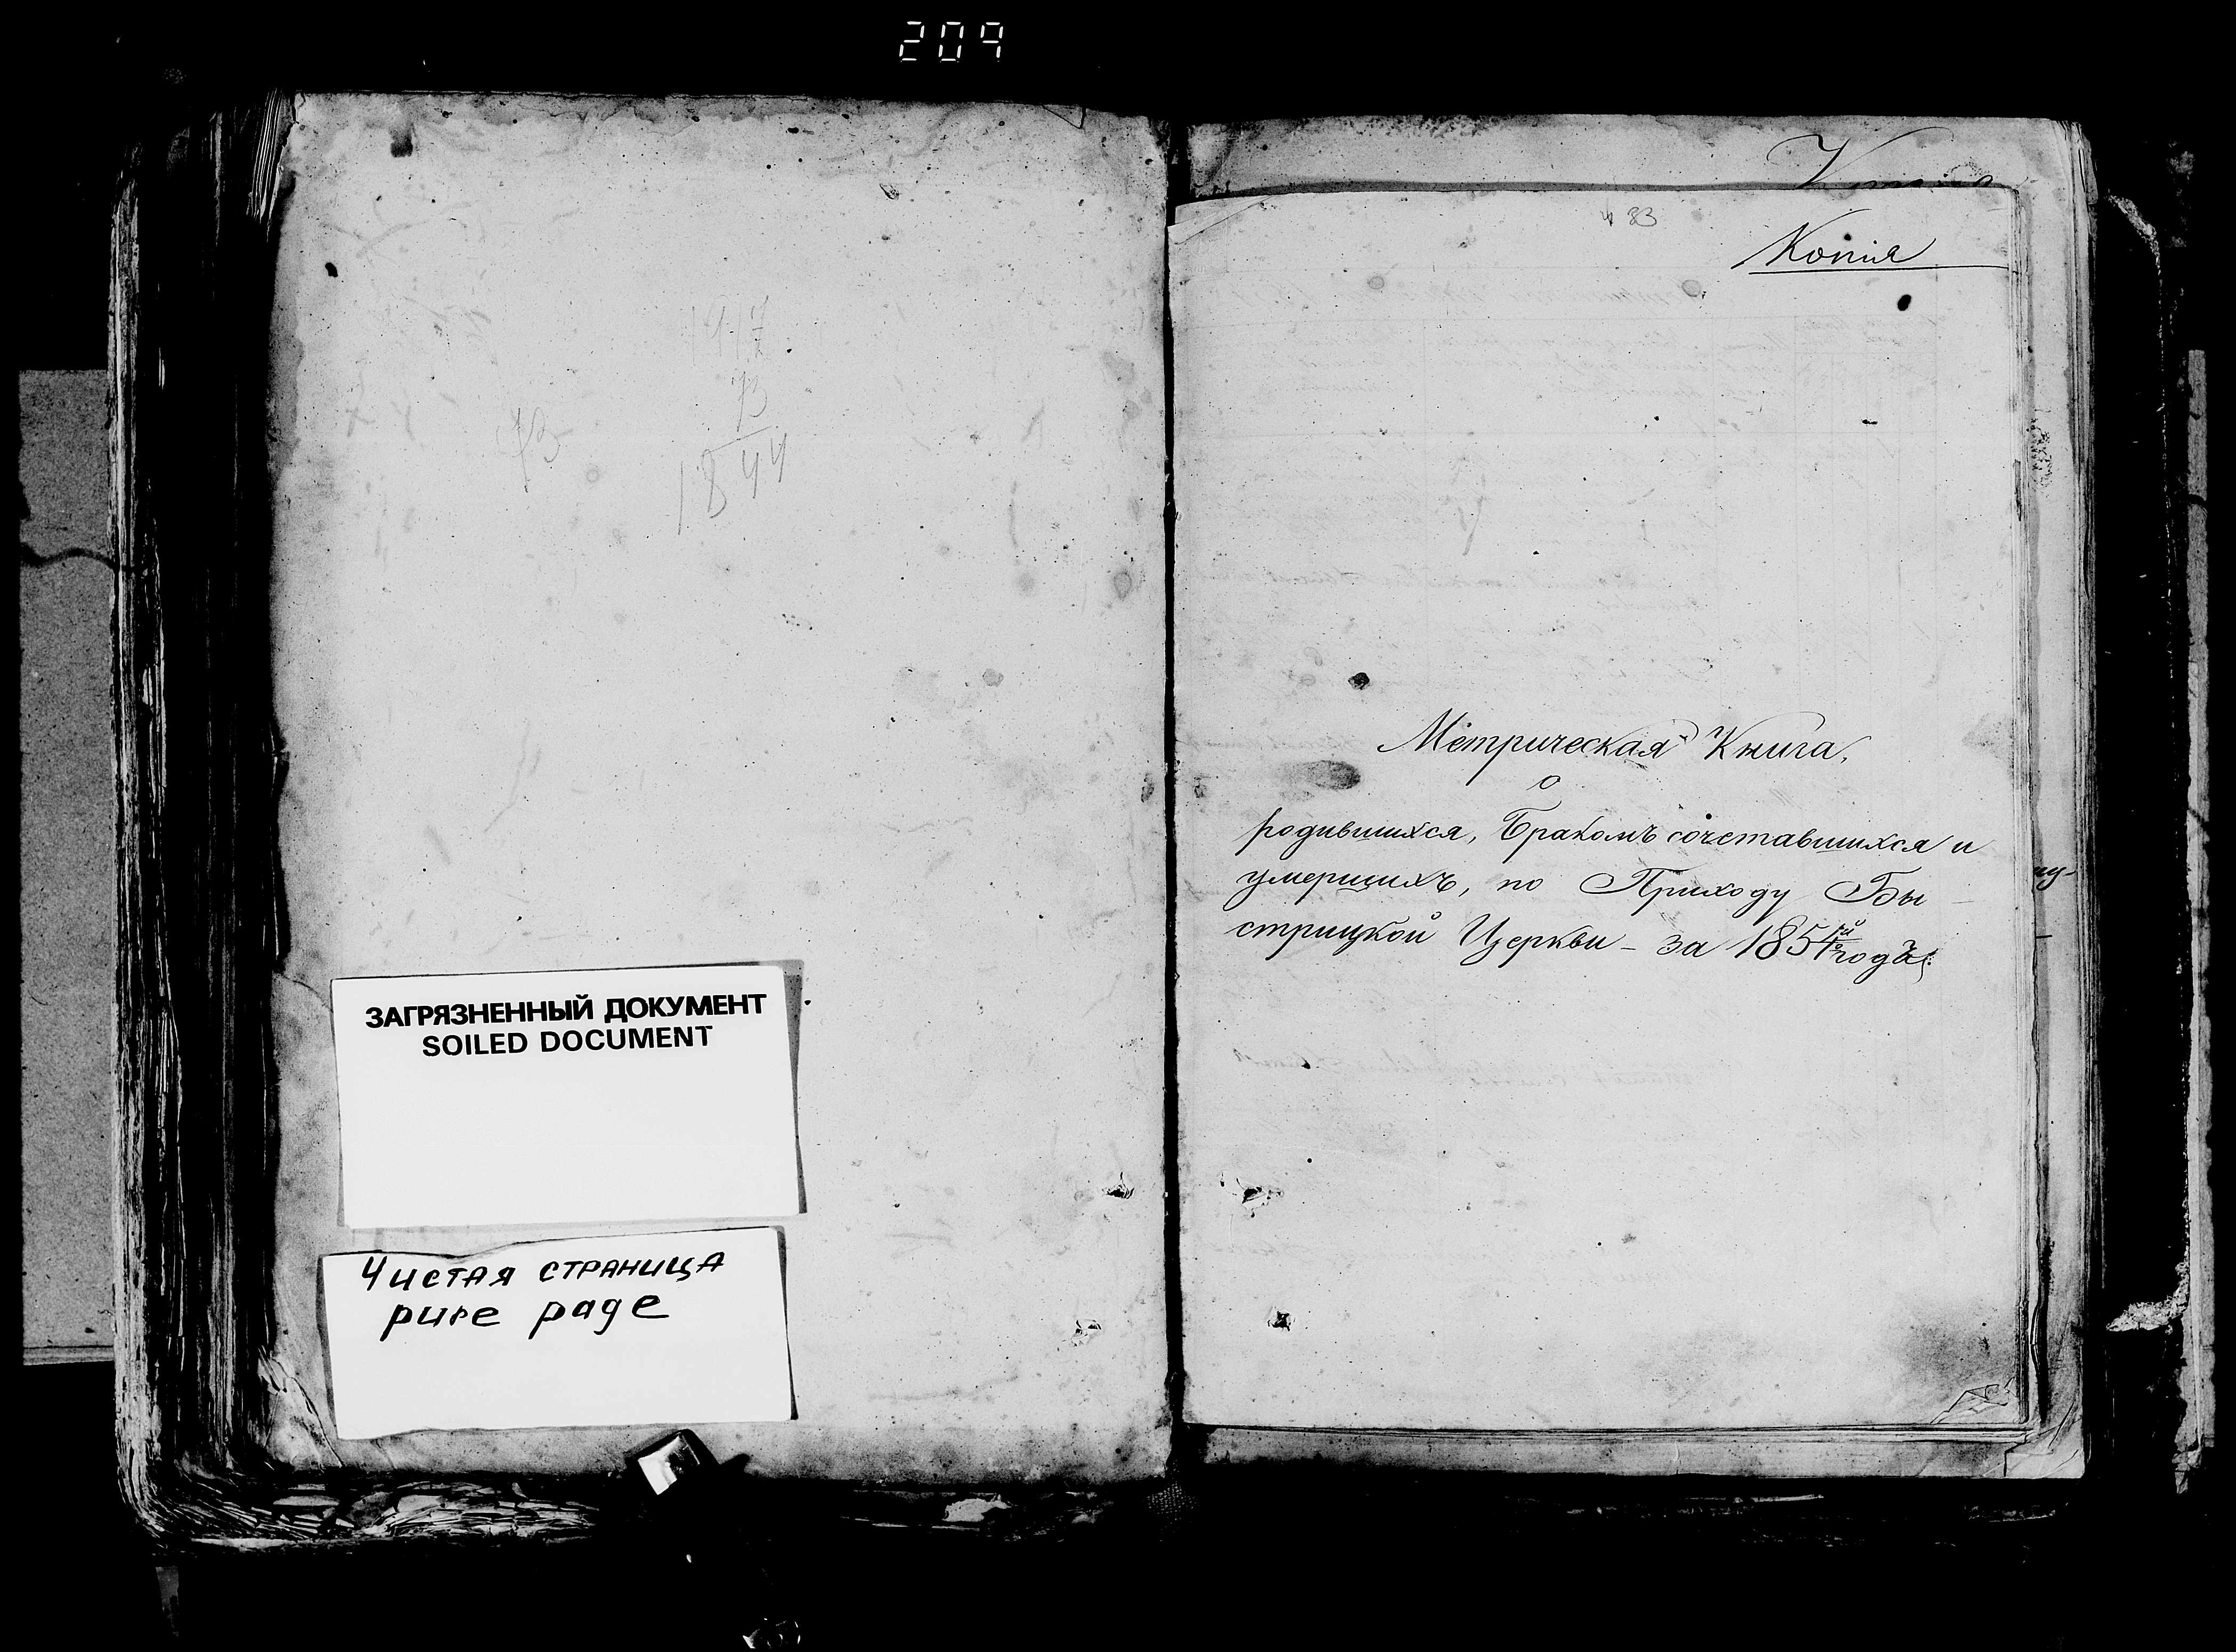 209
1917
73
73
1844
ЗАГРЯЗНЕННЫЙ ДОКУМЕНТ
SOILED DOCUMENT
Чистая страница
pure page
Копія
83
Копія
Метрическая Книга,
о
родившихся, Бракомъ сочетавшихся и
умершихъ, по Приходу Бы
стрицкой Церкви – за 1854й годъ